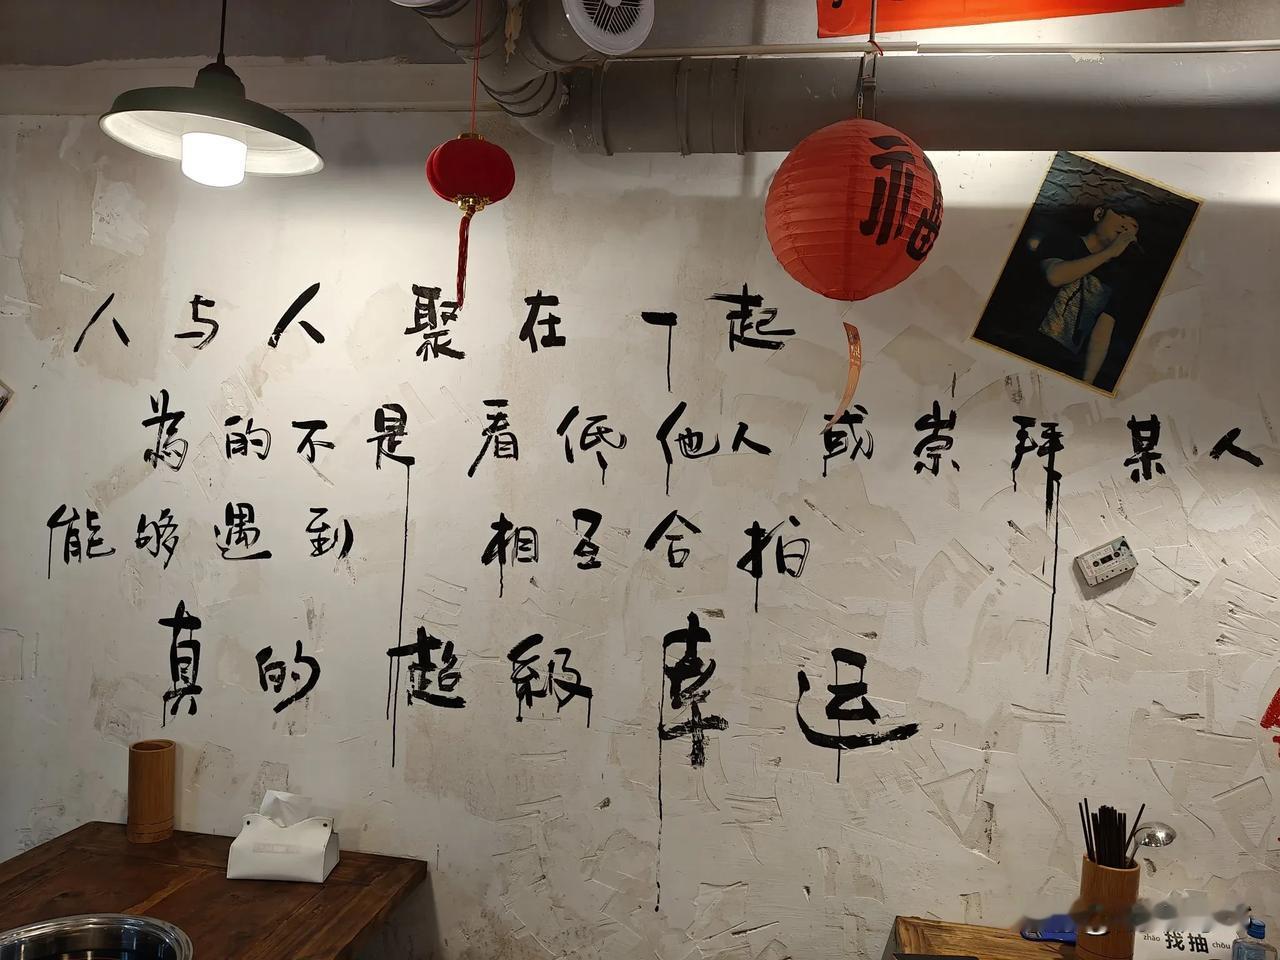 福
人与人聚在一起
為的不是看低他人或崇拜某人
能够遇到 相互合拍
真的超級幸运
zhǎo 找抽 chōu